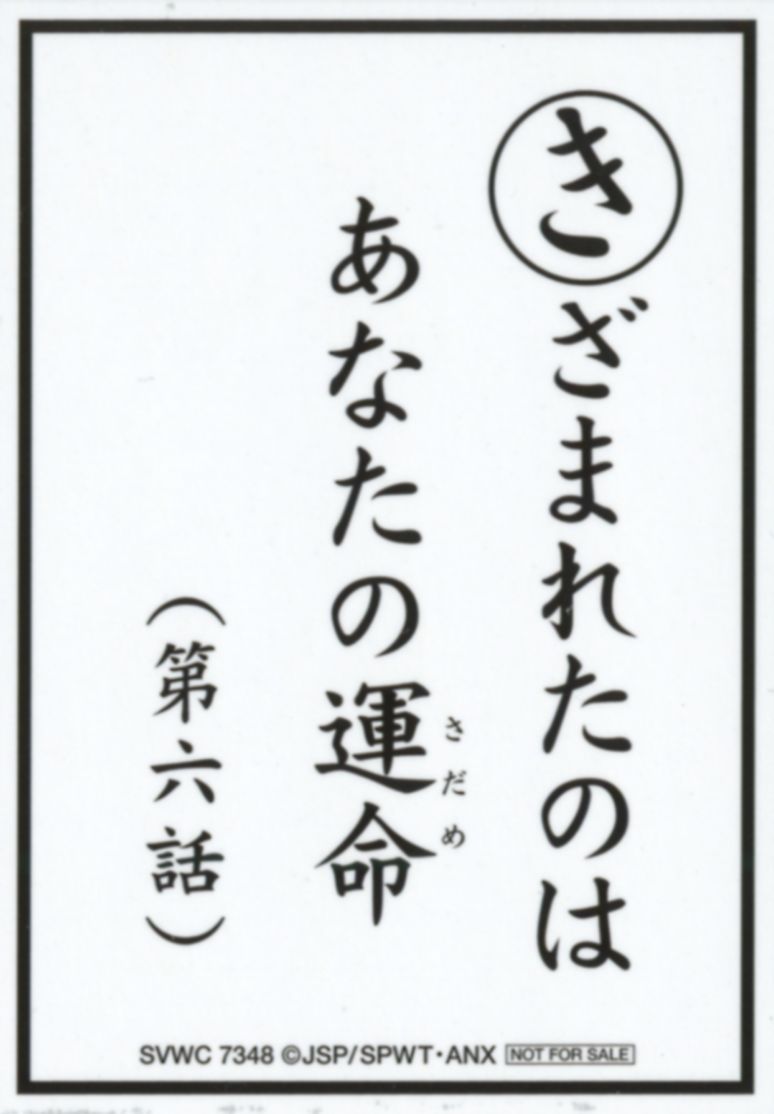 きざまれたのは
あなたの運命
さだめ
(第六話)
SVWC 7348 ©JSP/SPWT・ANX NOT FOR SALE